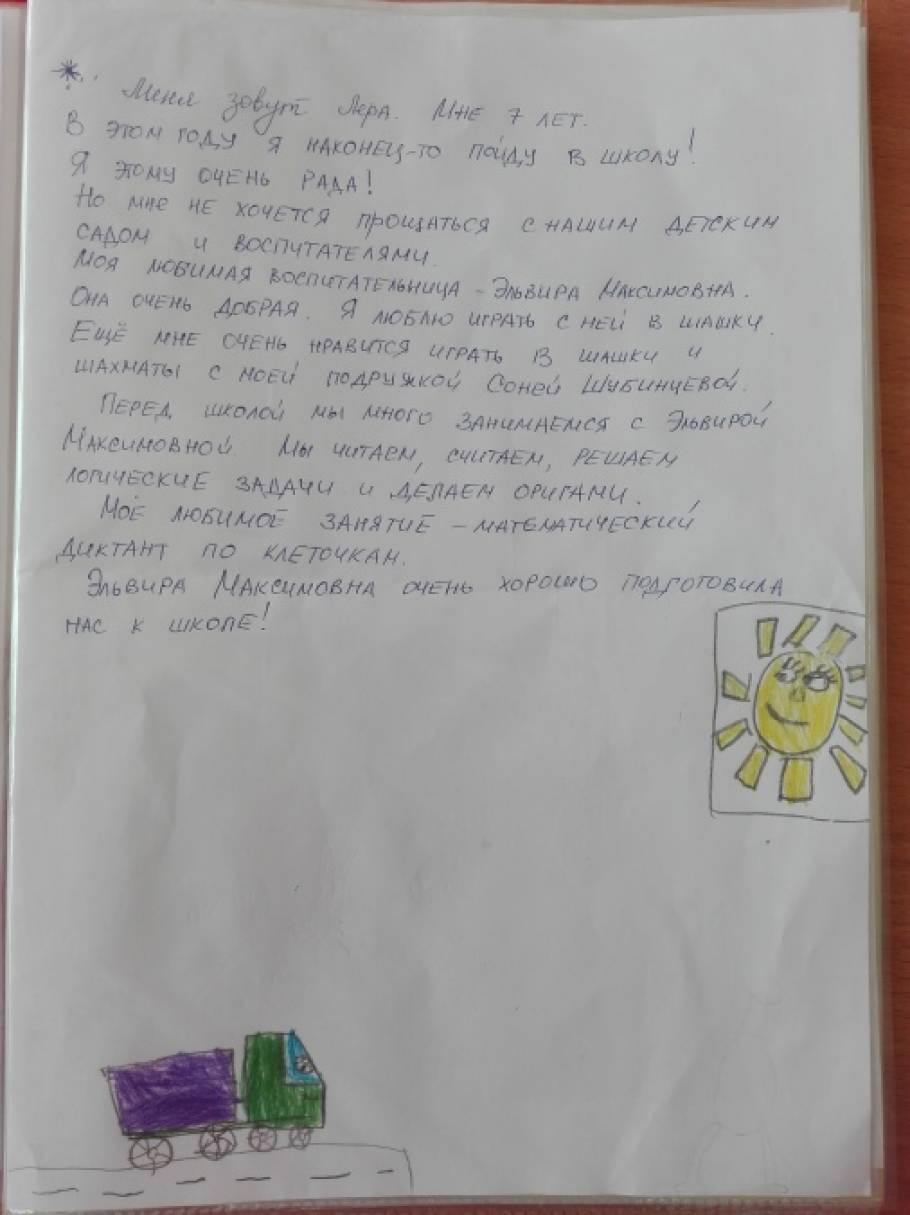 Меня зовут Лера. Мне 7 лет.
В этом году я наконец-то пойду в школу!
Я этому очень рада!
Но мне не хочется прощаться с нашим детским
садом и воспитателями.
Моя любимая воспитательница - Эльвира Максимовна.
Она очень добрая. Я люблю играть с ней в шашки.
Ещё мне очень нравится играть в шашки и
шахматы с моей подружкой Соней Шубинцевой.
Перед школой мы много занимаемся с Эльвирой
Максимовной. Мы читаем, считаем, решаем
логические задачи и делаем оригами.
Моё любимое занятие - математический
диктант по клеточкам.
Эльвира Максимовна очень хорошо подготовила
нас к школе!